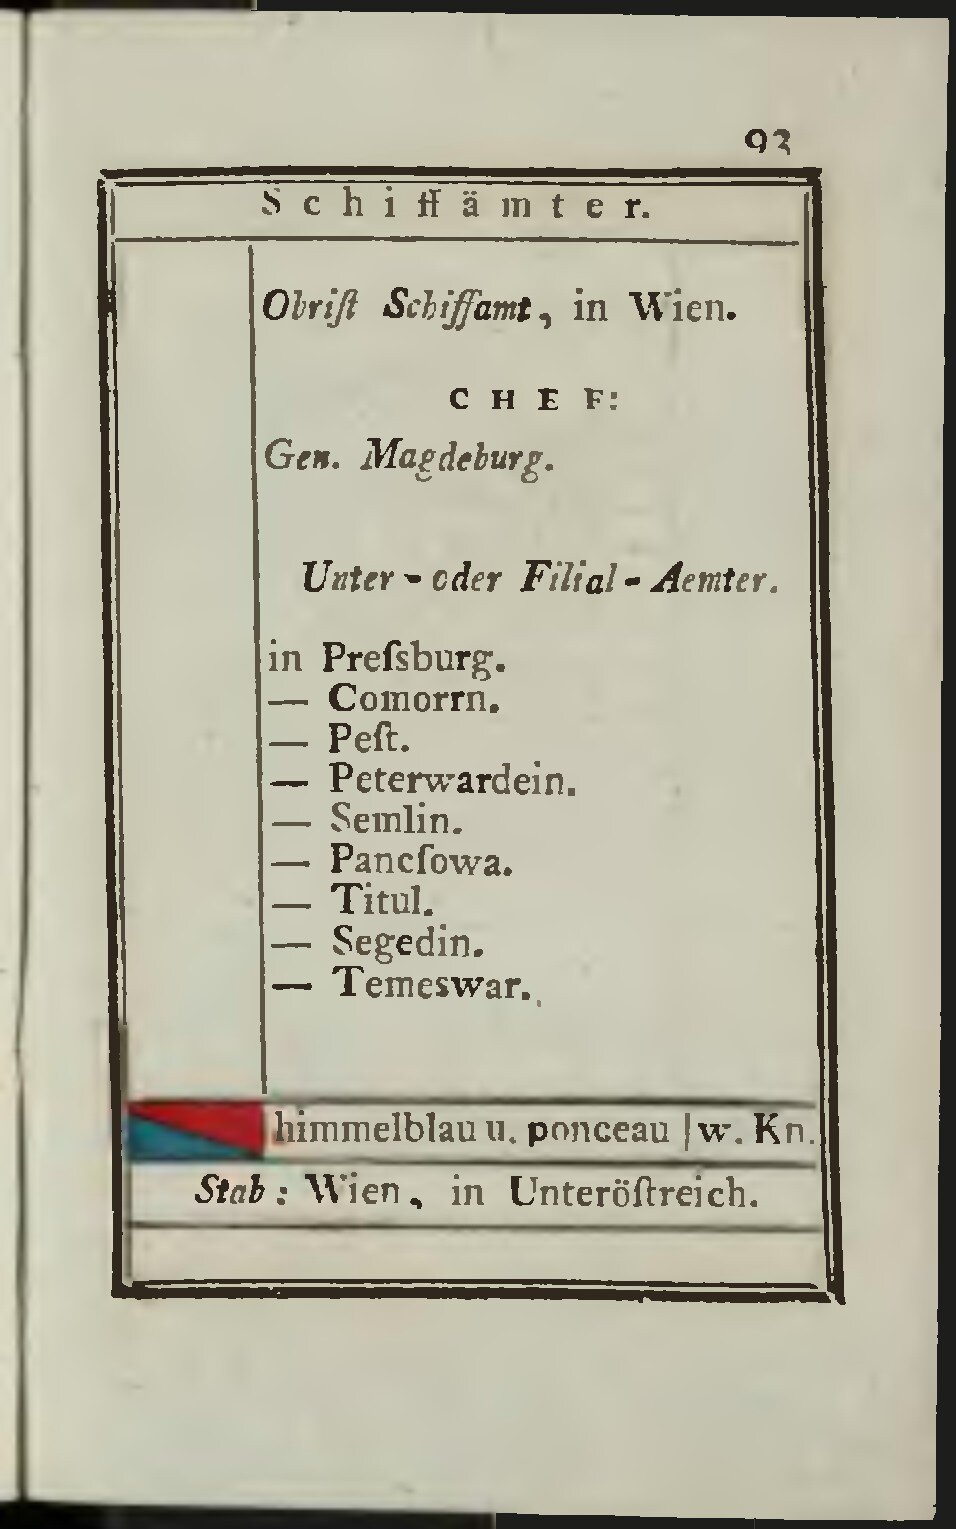 93
Schiffämter.
Obriſt Schiffamt, in Wien.
CHEF:
Gen. Magdeburg.
Unter- oder Filial-Aemter.
in Preſsburg.
— Comorrn.
— Peſt.
— Peterwardein.
— Semlin.
— Pancſowa.
— Titul.
— Segedin.
— Temeswar.
himmelblau u. ponceau | w. Kn.
Stab: Wien, in Unteröſtreich.